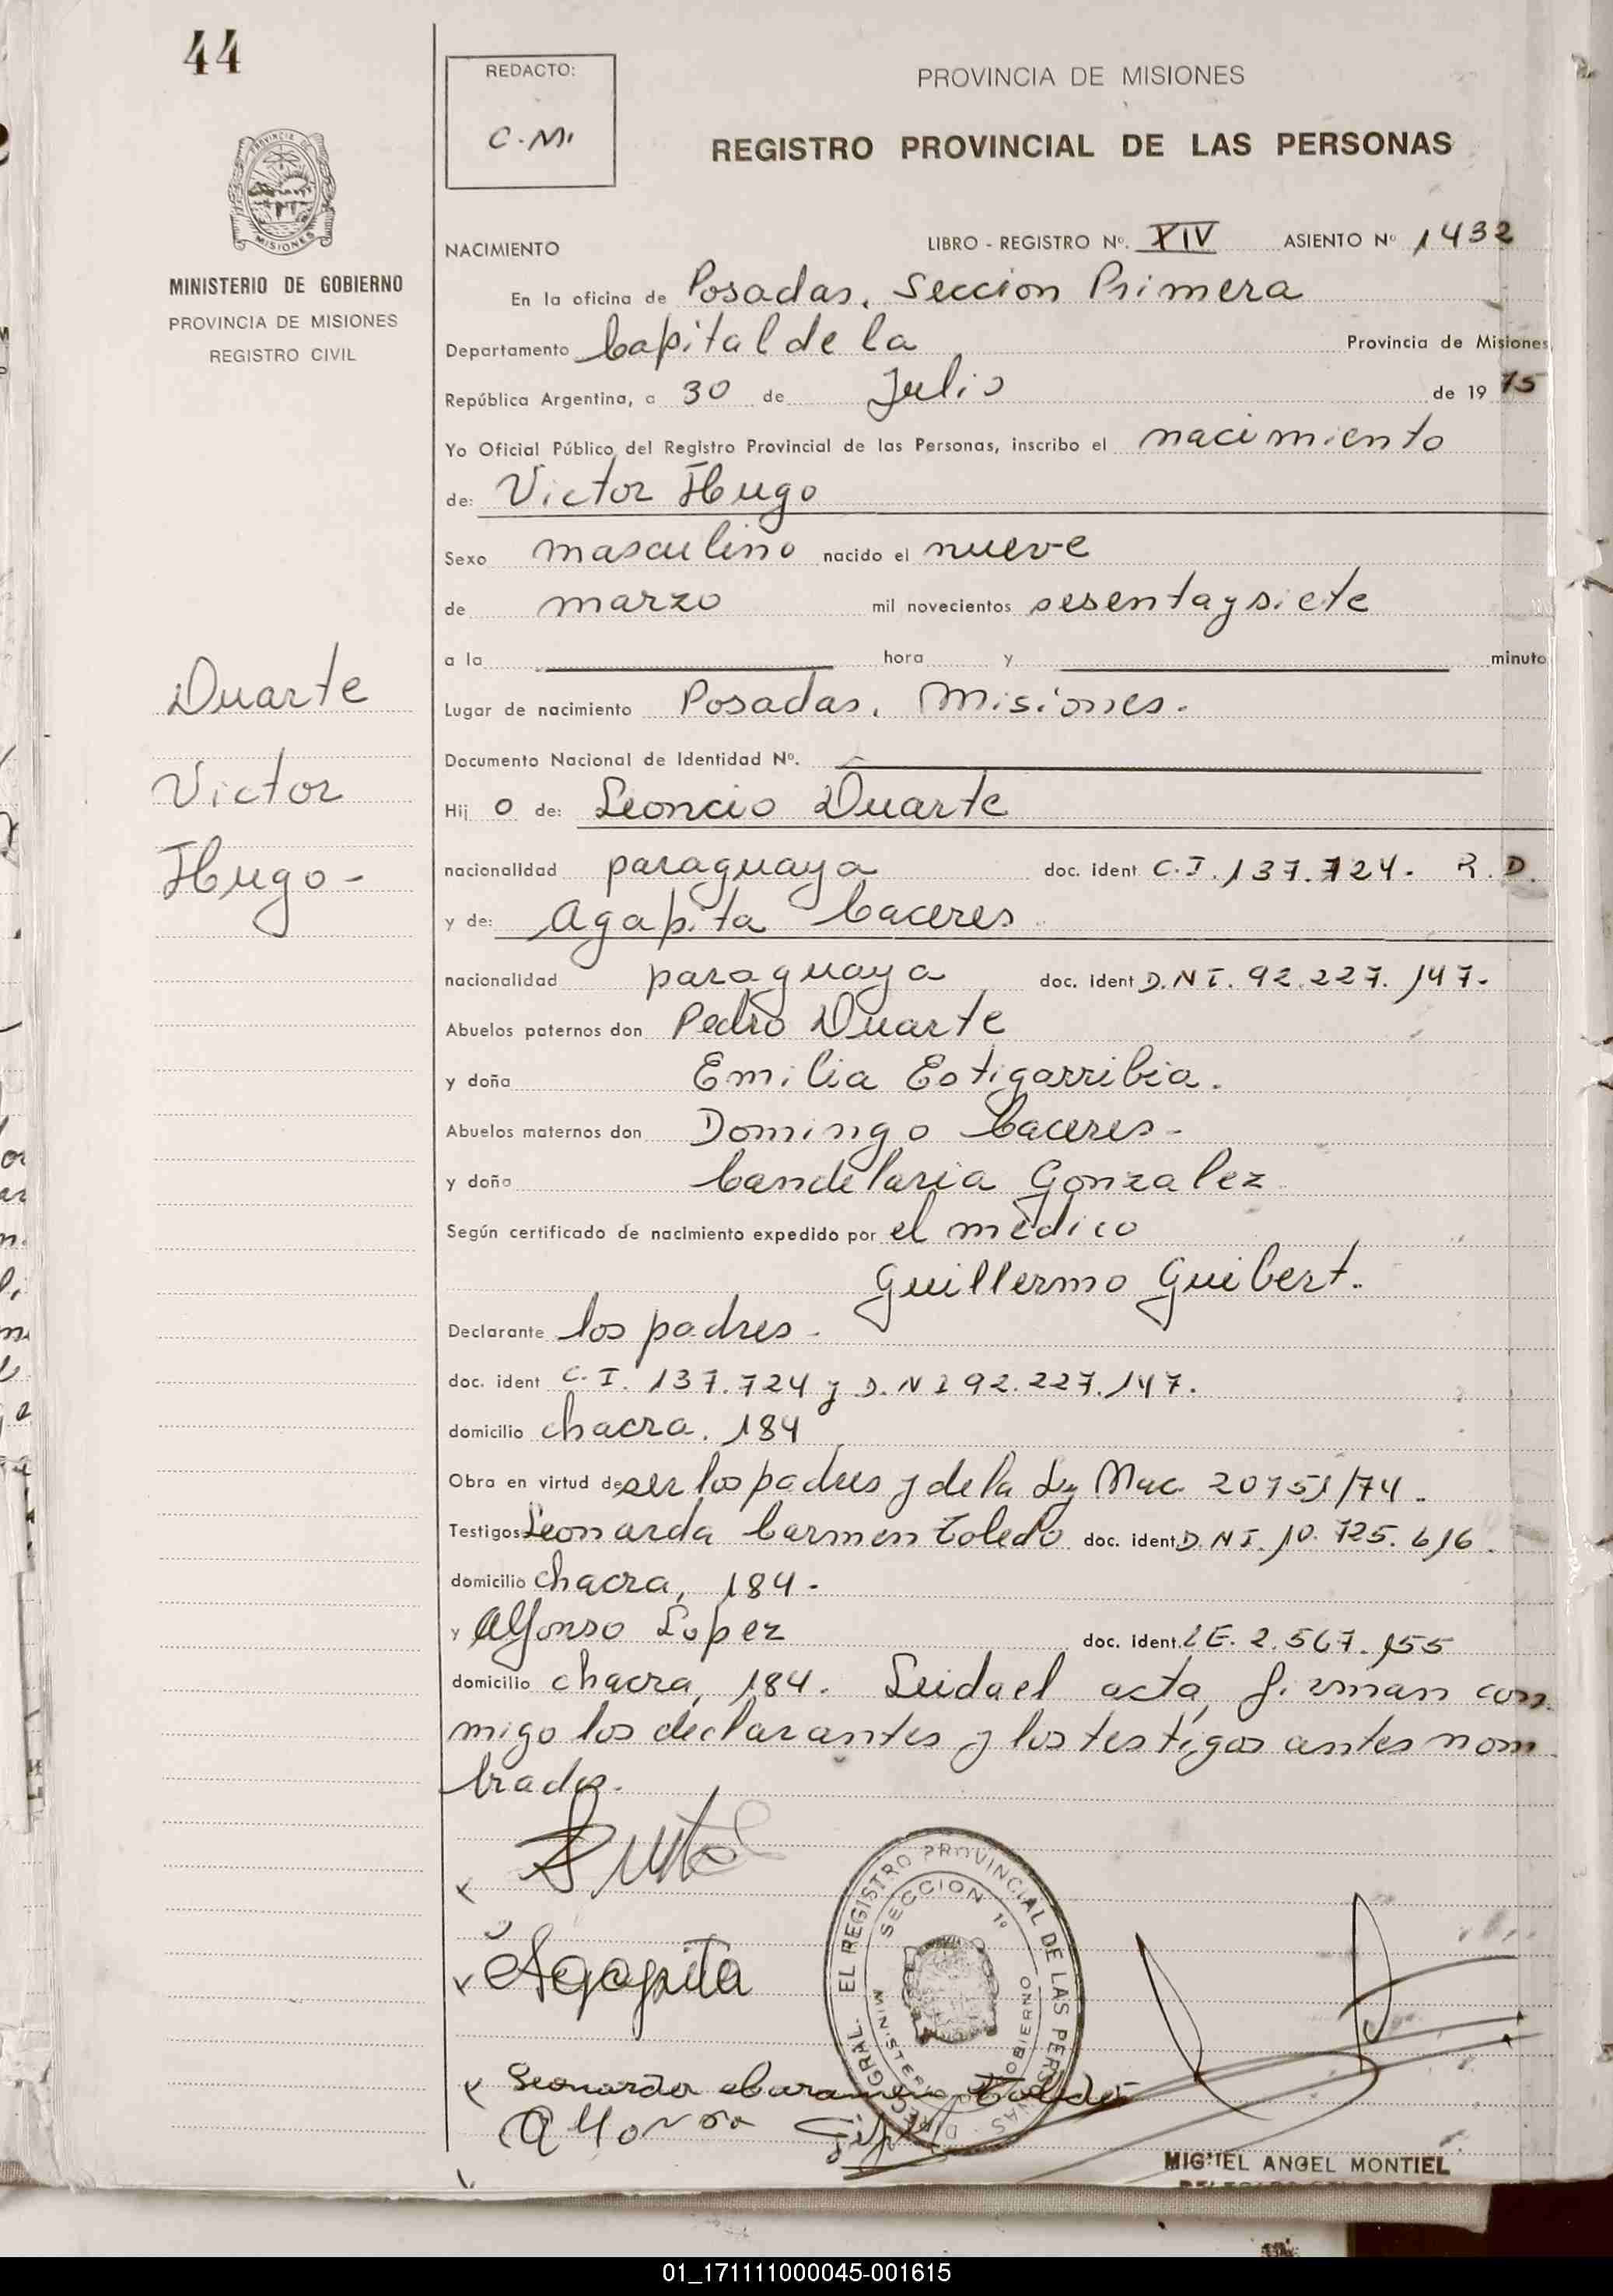 44
REDACTO:
C.M.
PROVINCIA DE MISIONES
REGISTRO PROVINCIAL DE LAS PERSONAS
PROVINCIA DE
MISIONES
MINISTERIO DE GOBIERNO
PROVINCIA DE MISIONES
REGISTRO CIVIL
NACIMIENTO LIBRO - REGISTRO Nº. XIV ASIENTO Nº 1432
En la oficina de Posadas, Seccion Primera
Departamento Capital de la Provincia de Misiones
República Argentina, a 30 de Julio de 1975
Yo Oficial Público del Registro Provincial de las Personas, inscribo el nacimiento
de: Victor Hugo
Sexo masculino nacido el nueve
de marzo mil novecientos sesentaysiete
a la hora y minuto
Lugar de nacimiento Posadas, Misiones.
Documento Nacional de Identidad Nº.
Hij o de: Leoncio Duarte
nacionalidad paraguaya doc. ident C.I. 137.724. R.D.
y de: Agapita Caceres
nacionalidad paraguaya doc. ident D.N I. 92.227.147.
Abuelos paternos don Pedro Duarte
y doña Emilia Estigarribia.
Abuelos maternos don Domingo Caceres-
y doña Candelaria Gonzalez
Según certificado de nacimiento expedido por el médico
Guillermo Guibert.
Declarante los padres-
doc. ident C.I. 137.724 y D.N I 92.227.147.
domicilio chacra. 184
Obra en virtud de ser los padres y de la Ley Nac. 20751/74.
Testigos Leonarda Carmen Toledo doc. ident. D.N I. 10.725.616.
domicilio chacra, 184-
y Alfonso Lopez doc. ident. LE. 2.567.155
domicilio chacra, 184. Leida el acta, firman con
migo los declarantes y los testigos antes nom
brados.
Duarte
Victor
Hugo-
Agapita
EL REGISTRO PROVINCIAL DE LAS PERSONAS
SECCION 1º
MINISTERIO GOBIERNO
MIGUEL ANGEL MONTIEL
01_171111000045-001615